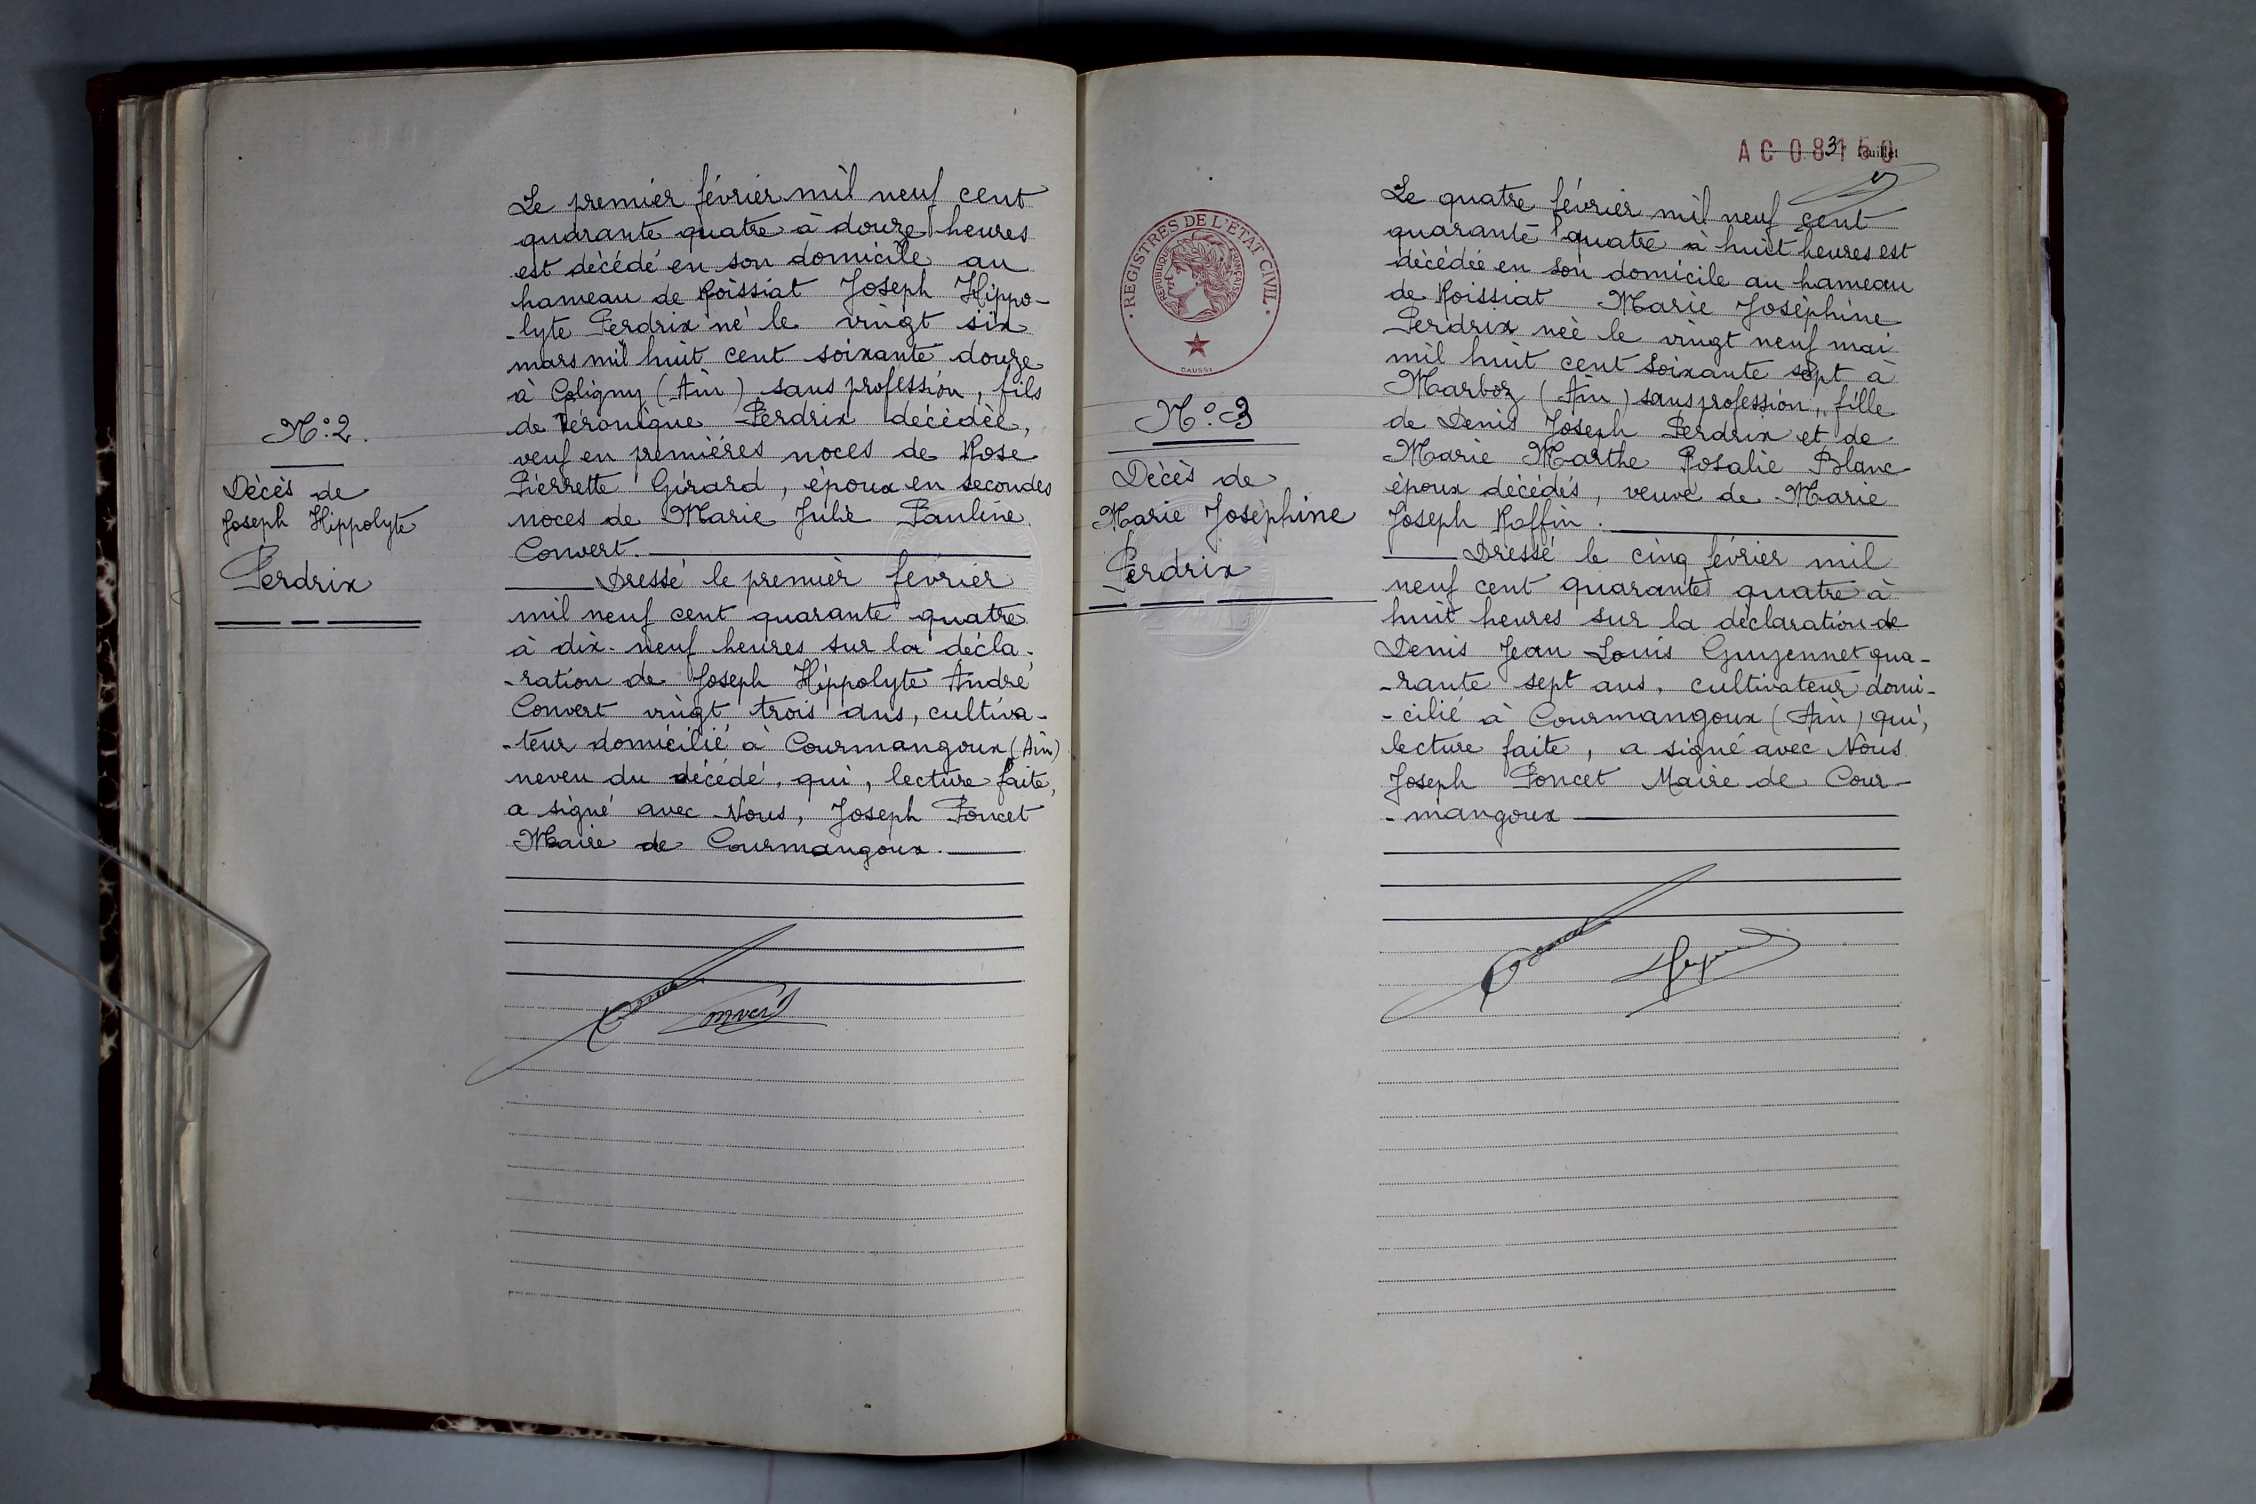 N.º 2.
Décès de
Joseph Hippolyte
Perdrix
Le premier février mil neuf cent
quarante quatre à douze heures
est décédé en son domicile au
hameau de Roissiat Joseph Hippo-
-lyte Perdrix né le vingt six
mars mil huit cent soixante douze
à Coligny (Ain) sans profession, fils
de Véronique Perdrix décédée,
veuf en premières noces de Rose
Pierrette Girard, époux en secondes
noces de Marie Julie Pauline
Convert.
Dressé le premier février
mil neuf cent quarante quatre
à dix-neuf heures sur la décla-
-ration de Joseph Hippolyte André
Convert vingt trois ans, cultiva-
-teur domicilié à Courmangoux (Ain)
neveu du décédé, qui, lecture faite,
a signé avec Nous, Joseph Poncet
Maire de Courmangoux.
Poncet Convert
AC 08150
3 feuillet
REGISTRES DE L'ÉTAT CIVIL
RÉPUBLIQUE FRANÇAISE
DAUSSI
N.º 3
Décès de
Marie Joséphine
Perdrix
Le quatre février mil neuf cent
quarante quatre à huit heures est
décédée en son domicile au hameau
de Roissiat Marie Joséphine
Perdrix née le vingt neuf mai
mil huit cent soixante sept à
Marboz (Ain) sans profession, fille
de Denis Joseph Perdrix et de
Marie Marthe Rosalie Blanc
époux décédés, veuve de Marie
Joseph Roffin.
Dressé le cinq février mil
neuf cent quarante quatre à
huit heures sur la déclaration de
Denis Jean Louis Guyennet qua-
-rante sept ans, cultivateur domi-
-cilié à Courmangoux (Ain) qui,
lecture faite, a signé avec Nous
Joseph Poncet Maire de Cour-
-mangoux
Poncet